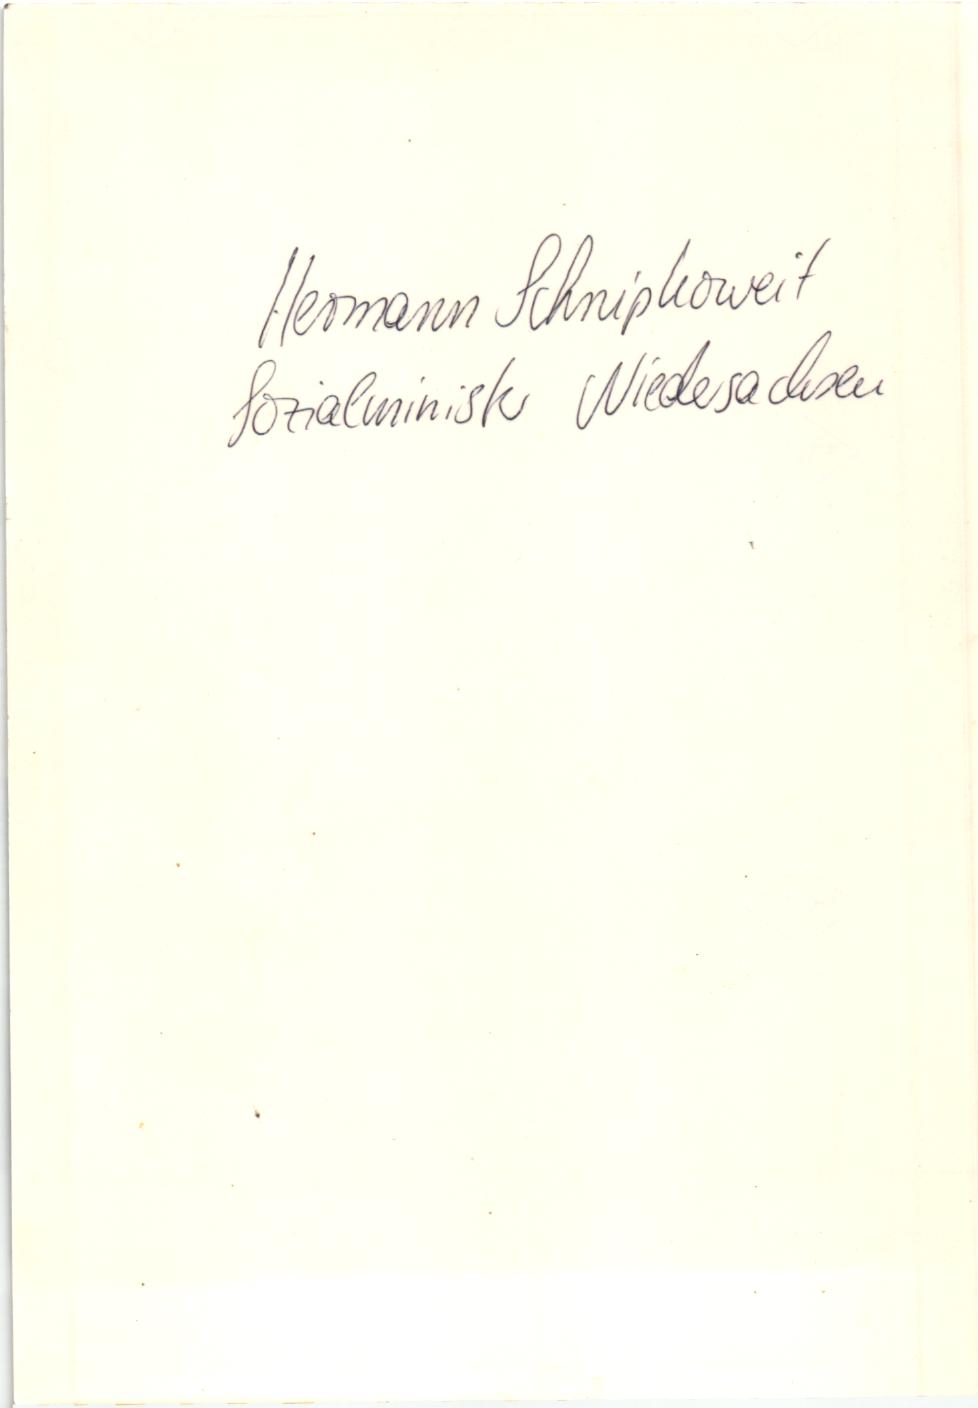 Hermann Schnipkoweit
Sozialminister Niedersachsen